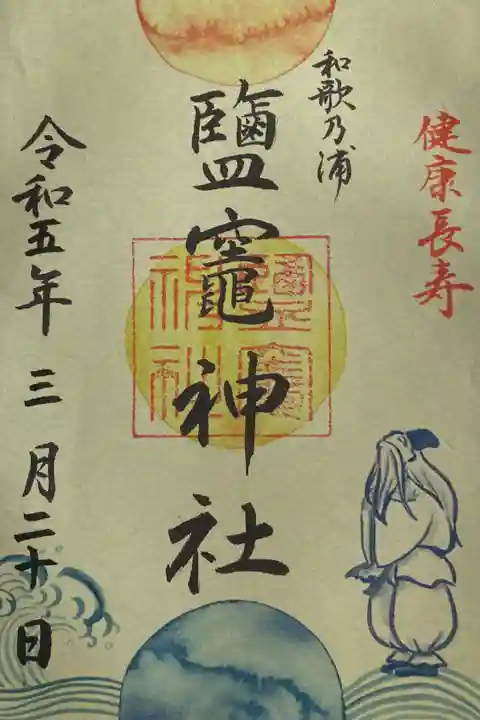 健康長寿
和歌乃浦
鹽竈神社
鹽竈
神社
令和五年三月二十日